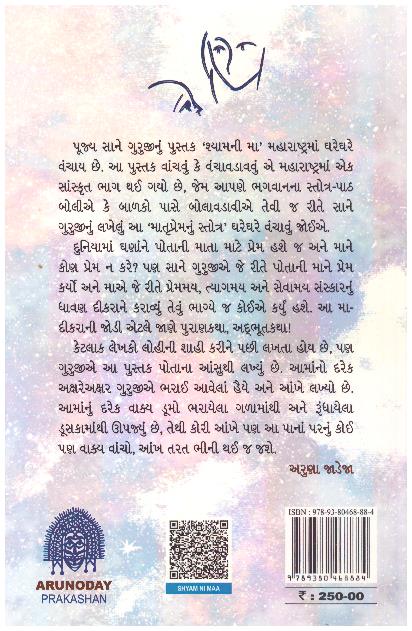 પૂજ્ય સાને ગુરુજીનું પુસ્તક ‘શ્યામની મા’ મહારાષ્ટ્રમાં ઘરેઘરે
વંચાય છે. આ પુસ્તક વાંચવું કે વંચાવડાવવું એ મહારાષ્ટ્રમાં એક
સાંસ્કૃત ભાગ થઈ ગયો છે, જેમ આપણે ભગવાનના સ્તોત્ર-પાઠ
બોલીએ કે બાળકો પાસે બોલાવડાવીએ તેવી જ રીતે સાને
ગુરુજીનું લખેલું આ ‘માતૃપ્રેમનું સ્તોત્ર’ ઘરેઘરે વંચાવું જોઈએ.
દુનિયામાં ઘણાંને પોતાની માતા માટે પ્રેમ હશે જ અને માને
કોણ પ્રેમ ન કરે? પણ સાને ગુરુજીએ જે રીતે પોતાની માને પ્રેમ
કર્યો અને માએ જે રીતે પ્રેમમય, ત્યાગમય અને સેવામય સંસ્કારનું
ધાવણ દીકરાને કરાવ્યું તેવું ભાગ્યે જ કોઈએ કર્યું હશે. આ મા-
દીકરાની જોડી એટલે જાણે પુરાણકથા, અદ્ભૂતકથા!
કેટલાક લેખકો લોહીની શાહી કરીને પછી લખતા હોય છે, પણ
ગુરુજીએ આ પુસ્તક પોતાના આંસુથી લખ્યું છે. આમાંનો દરેક
અક્ષરેઅક્ષર ગુરુજીએ ભરાઈ આવેલાં હૈયે અને આંખે લાખ્યો છે.
આમાંનું દરેક વાક્ય ડૂમો ભરાયેલા ગળામાંથી અને રૂંધાયેલા
ડૂસકામાંથી ઊપજ્યું છે, તેથી કોરી આંખે પણ આ પાનાં પરનું કોઈ
પણ વાક્ય વાંચો, આંખ તરત ભીની થઈ જ જશે.
અરુણા જાડેજા
ISBN : 978-93-80468-88-4
9 789380 468884
₹ : 250-00
ARUNODAY
PRAKASHAN
SHYAM NI MAA